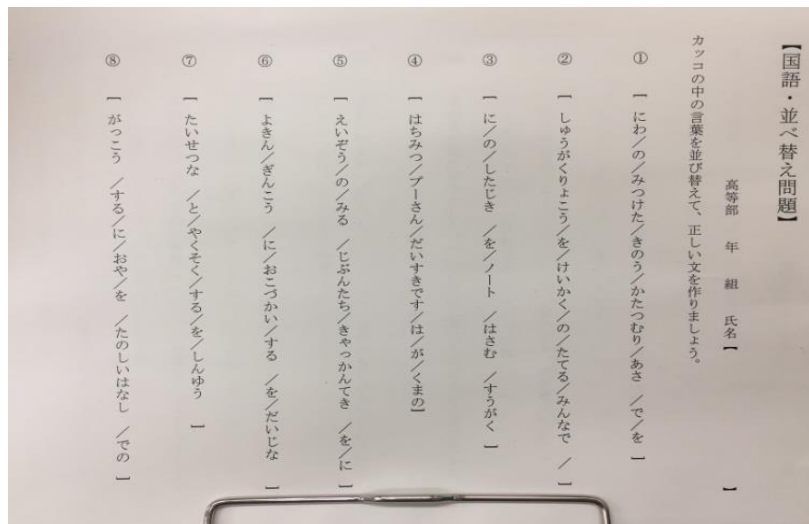 【国語・並べ替え問題】
高等部 年 組 氏名【 】
カッコの中の言葉を並び替えて、正しい文を作りましょう。
① [ にわ/の/みつけた/きのう/かたつむり/あさ /で/を ]
② [ しゅうがくりょこう/を/けいかく/の/たてる/みんなで / ]
③ [ に/の/したじき /を/ノート /はさむ /すうがく ]
④ [ はちみつ/プーさん/だいすきです/は/が/くまの]
⑤ [ えいぞう/の/みる /じぶんたち/きゃっかんてき /を/に ]
⑥ [ よきん/ぎんこう /に/おこづかい/する /を/だいじな ]
⑦ [ たいせつな /と/やくそく/する/を/しんゆう ]
⑧ [ がっこう /する/に/おや/を /たのしいはなし /での ]